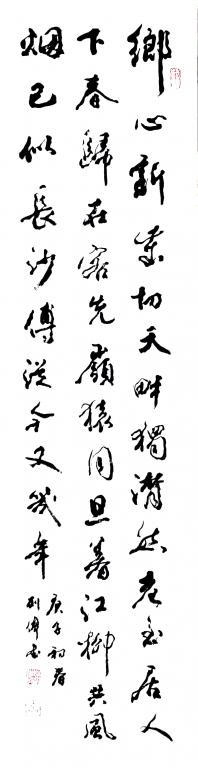 鄉心新歲切天畔獨潸然老至居人
下春歸在客先嶺猿同旦暮江柳共風
烟已似長沙傅從今又幾年
庚子初春
刘傅書